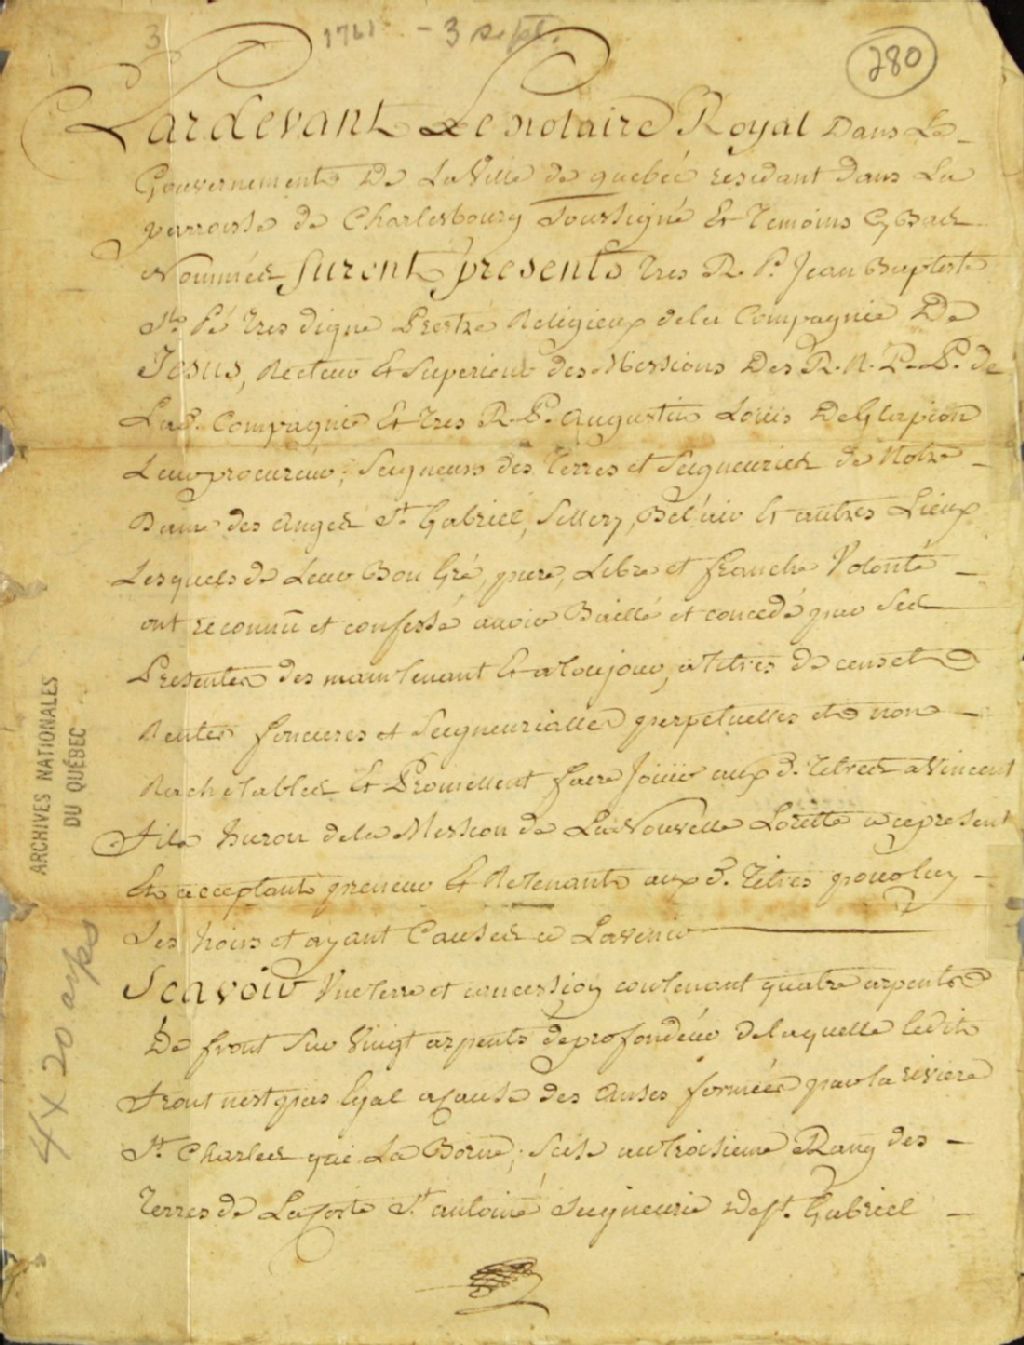 3 1761 - 3 sept.
280
Pardevant Le Notaire Royal Dans Le
Gouvernement De La Ville de quebéc residant dans La
parroisse de Charlesbourg Soussigné Et Temoins Cy Bas
Nommés furent presents Tres R. P. Jean Baptiste
St. Pé tres digne Prestre Religieux de la Compagnie De
Jesus, Recteur Et Superieur des Missions Des R. R. P. P. de
La d. Compagnie Et tres R. P. Augustin Louis De Glapion
Leur procureur, Seigneurs des Terres et Seigneuries de Notre
Dame des Anges St. Gabriel, Sillery, Bel'air Et autres Lieux
Lesquels de Leur Bon Gré, pure, Libre et franche Volonté
ont reconnû et confessé avoir Baillé et concedé par Ses
Presentes des maintenant Et a toujour, a titres de cens et
Rentes foncieres et Seigneurialles perpetuelles et non
Rachetables Et Promettent faire Joüir aux d. Titres a Vincent
huron de la Mission de La Nouvelle Lorette a ce present
Et acceptant preneur Et Retenant aux d. Titres pour luy
Ses hoirs et ayant Causes a Lavenir
Scavoir Une terre et concession contenant quatre arpents
De front Sur Vingt arpents de profondeur de laquelle ledit
front nest pas Egal a cause des Anses formée par la riviere
St. Charles qui La Borne, Scise au troisieme Rang des
Terres de La Coste St. antoine Seigneurie de St. Gabriel
ARCHIVES NATIONALES
DU QUÉBEC
4 x 20 arps